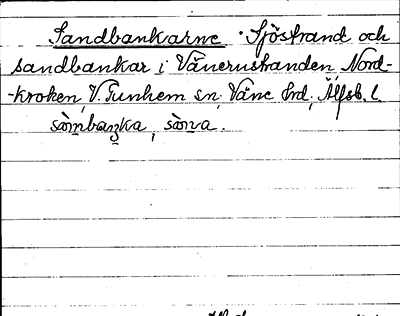 Sandbankarne. Sjöstrand och
sandbankar i Vänernstranden Nord-
-kroken, V. Tunhem sn, Väne hrd, Älfsb. l.
sòmbaŋka, sòna.